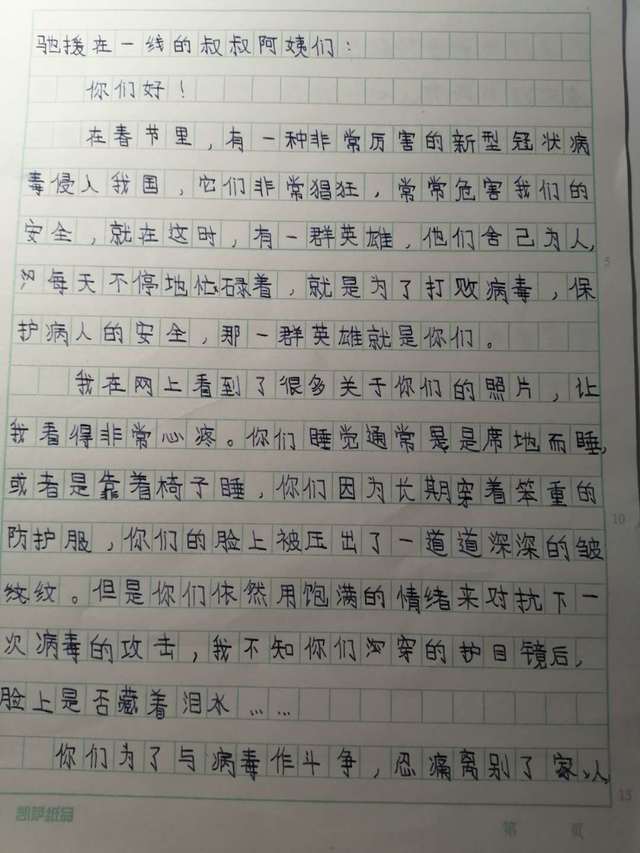 驰援在一线的叔叔阿姨们：
你们好！
在春节里，有一种非常厉害的新型冠状病
毒侵入我国，它们非常猖狂，常常危害我们的
安全，就在这时，有一群英雄，他们舍己为人，
每天不停地忙碌着，就是为了打败病毒，保
护病人的安全，那一群英雄就是你们。
我在网上看到了很多关于你们的照片，让
我看得非常心疼。你们睡觉通常是席地而睡，
或者是靠着椅子睡，你们因为长期穿着笨重的
防护服，你们的脸上被压出了一道道深深的皱
纹。但是你们依然用饱满的情绪来对抗下一
次病毒的攻击，我不知你们穿的护目镜后，
脸上是否藏着泪水……
你们为了与病毒作斗争，忍痛离别了家人
5
10
15
凯萨纸品
第 页